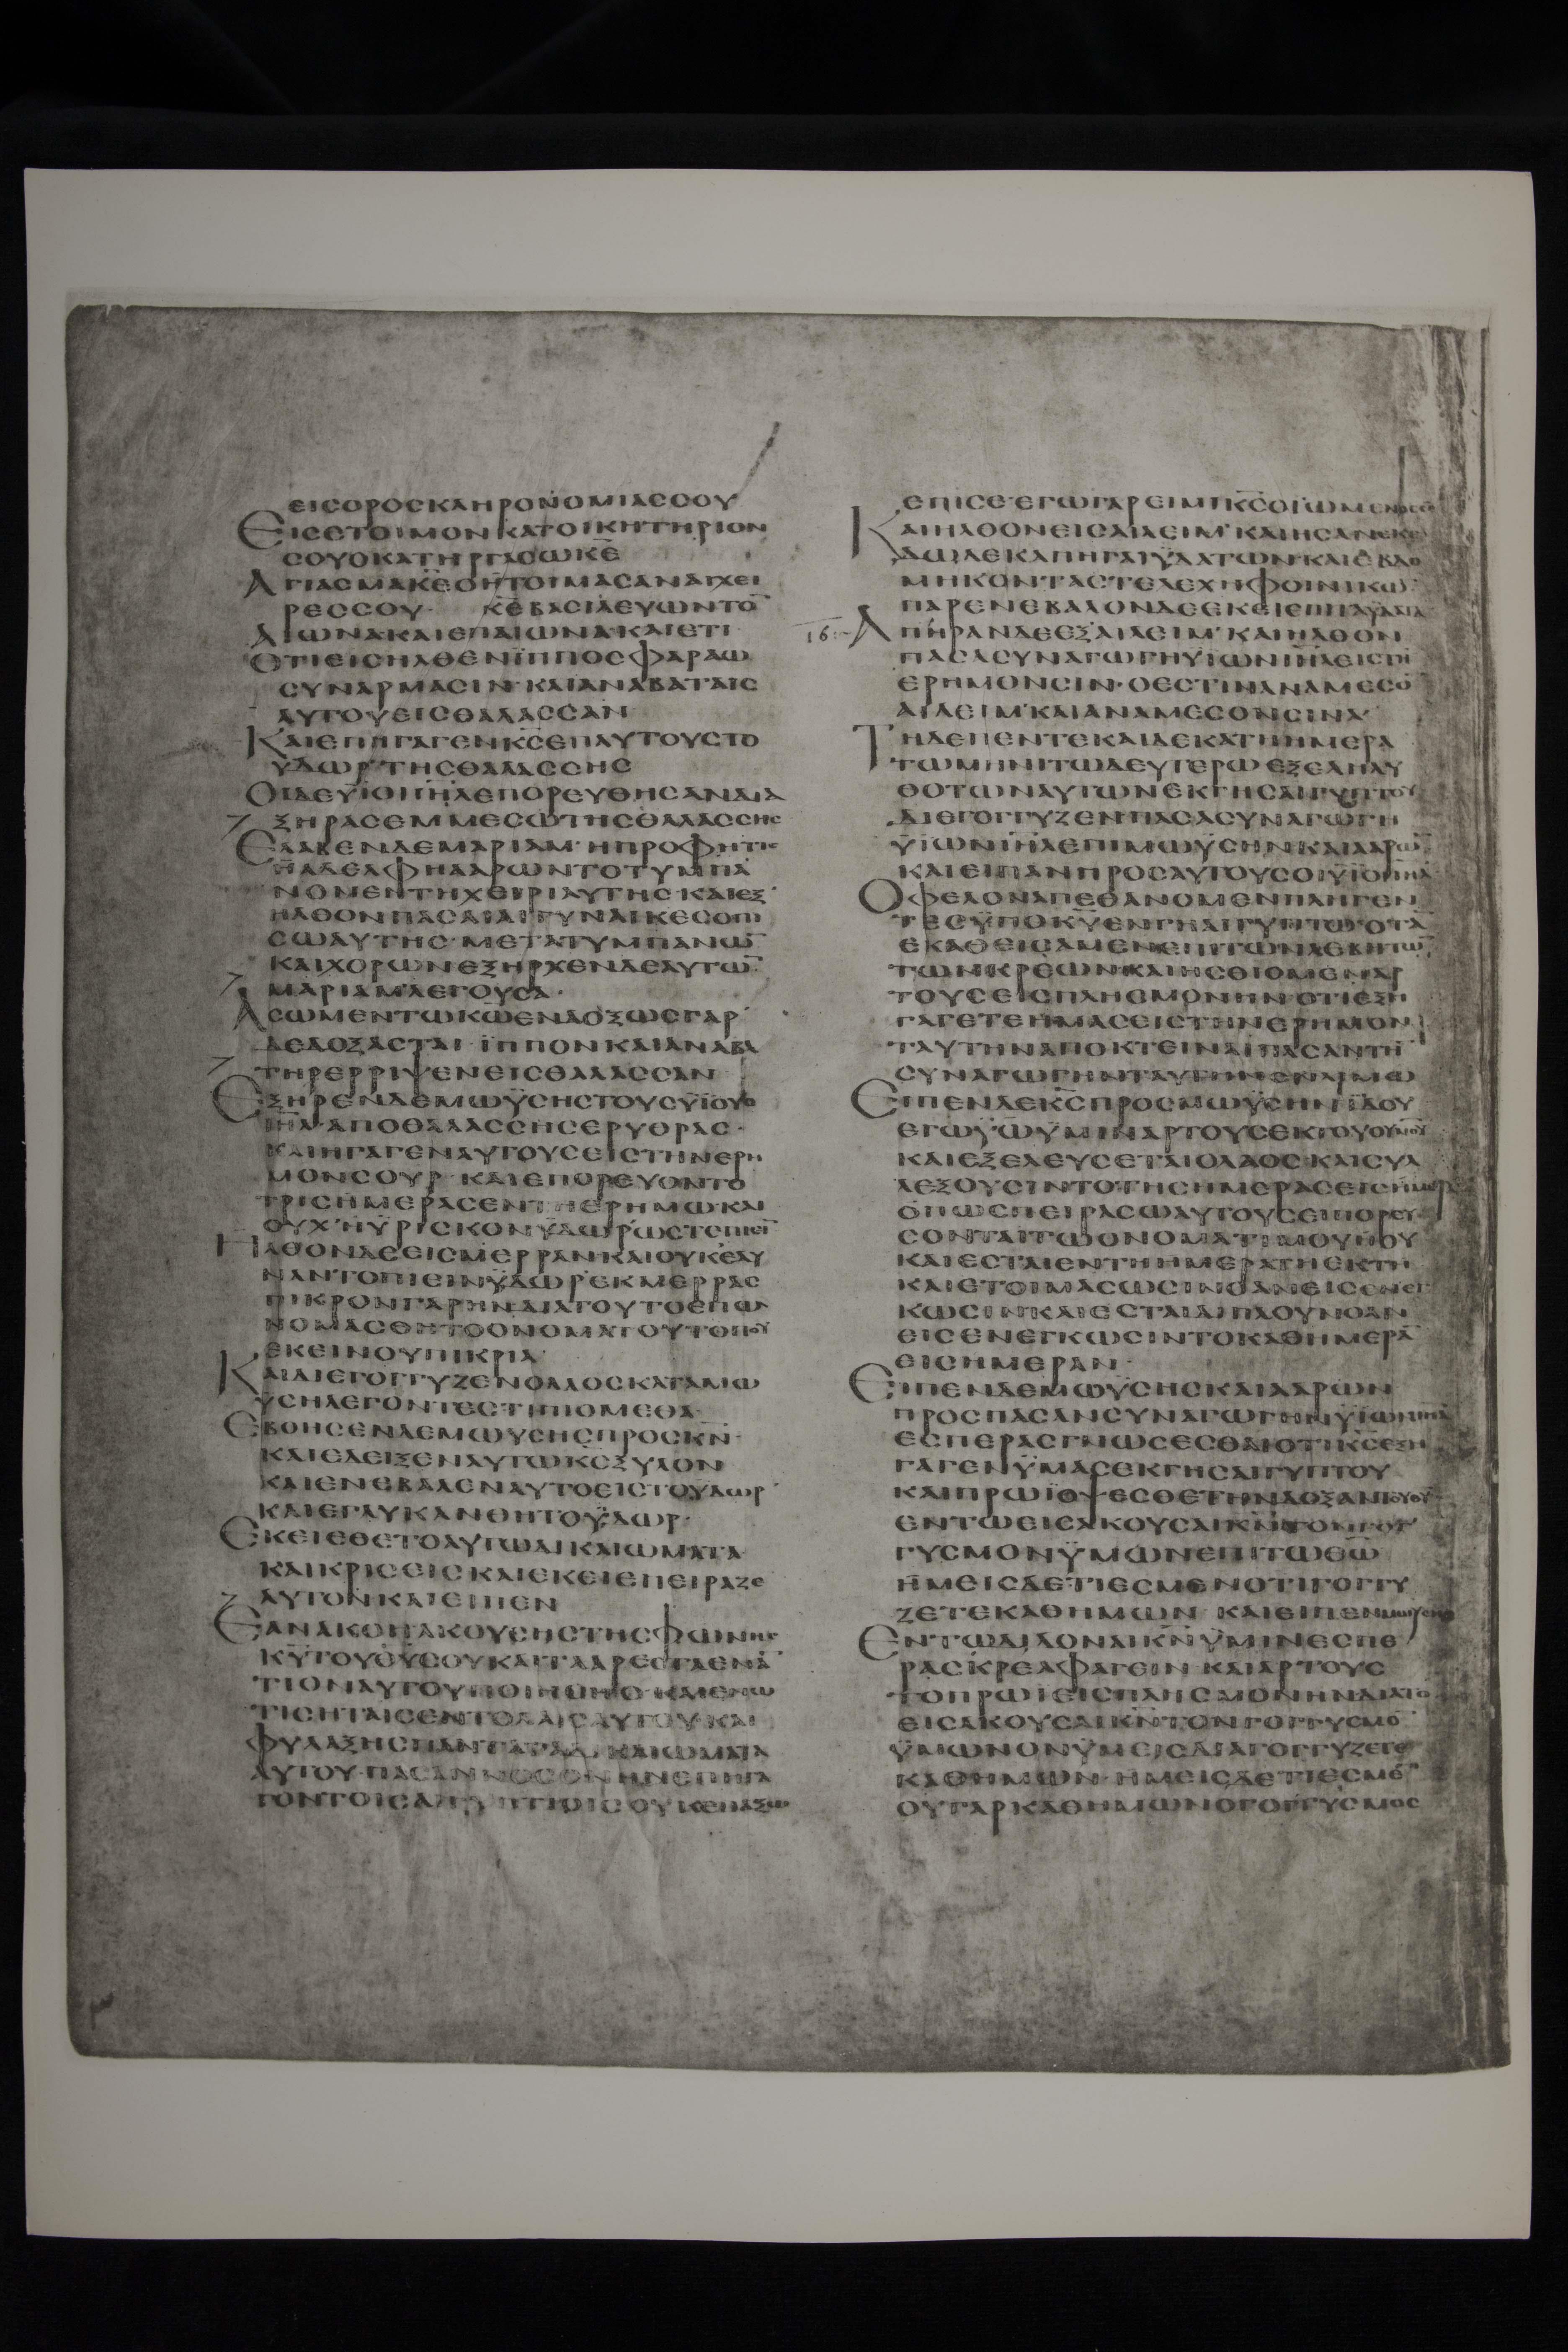 ΕΙCΟΡΟCΚΛΗΡΟΝΟΜΙΑCCΟΥ
ΕΙCΕΤΟΙΜΟΝΚΑΤΟΙΚΗΤΗΡΙΟΝ
CΟΥΟΚΑΤΗΡΓΑCΩΚ̅Ε̅
ΑΓΙΑCΜΑΚ̅Ε̅ΟΗΤΟΙΜΑCΑΝΑΙΧΕΙ
ΡΕCCΟΥ· Κ̅Ε̅ΒΑCΙΛΕΥΩΝΤΟ̅
ΑΙΩΝΑΚΑΙΕΠΑΙΩΝΑΚΑΙΕΤΙ
ΟΤΙΕΙCΗΛΘΕΝΪΠΠΟCΦΑΡΑΩ
CΥΝΑΡΜΑCΙΝ·ΚΑΙΑΝΑΒΑΤΑΙC
ΑΥΤΟΥΕΙCΘΑΛΑCCΑΝ
ΚΑΙΕΠΗΓΑΓΕΝΚ̅C̅ΕΠΑΥΤΟΥCΤΟ
ΫΔΩΡ·ΤΗCΘΑΛΑCCΗC
ΟΙΔΕΫΙΟΙΙ̅Η̅Λ̅ΕΠΟΡΕΥΘΗCΑΝΔΙΑ
ΞΗΡΑCΕΜΜΕCΩΤΗCΘΑΛΑCCΗC
ΕΛΑΒΕΝΔΕΜΑΡΙΑΜ·ΗΠΡΟΦΗΤΙC
ΗΑΔΕΛΦΗΑΑΡΩΝΤΟΤΥΜΠΑ
ΝΟΝΕΝΤΗΧΕΙΡΙΑΥΤΗC·ΚΑΙΕΞ
ΗΛΘΟΝΠΑCΑΙΑΙΓΥΝΑΙΚΕCΟΠΙ
CΩΑΥΤΗC·ΜΕΤΑΤΥΜΠΑΝΩ̅
ΚΑΙΧΟΡΩΝΕΞΗΡΧΕΝΔΕΑΥΤΩ̅
ΜΑΡΙΑΜΛΕΓΟΥCΑ·
ΑCΩΜΕΝΤΩΚ̅Ω̅ΕΝΔΟΞΩCΓΑΡ
ΔΕΔΟΞΑCΤΑΙ·ΪΠΠΟΝΚΑΙΑΝΑΒΑ
ΤΗΡΕΡΡΙΨΕΝΕΙCΘΑΛΑCCΑΝ
ΕΞΗΡΕΝΔΕΜΩΫCΗCΤΟΥCΫΙΟΥC
Ι̅Η̅Λ̅·ΑΠΟΘΑΛΑCCΗCΕΡΥΘΡΑC·
ΚΑΙΗΓΑΓΕΝΑΥΤΟΥCΕΙCΤΗΝΕΡΗ
ΜΟΝCΟΥΡ·ΚΑΙΕΠΟΡΕΥΟΝΤΟ
ΤΡΙCΗΜΕΡΑCΕΝΤΗΕΡΗΜΩΚΑΙ
ΟΥΧΗΫΡΙCΚΟΝΫΔΩΡΩCΤΕΠΙΕΙ̅
ΗΛΘΟΝΔΕΕΙCΜΕΡΡΑΝΚΑΙΟΥΚΕΔΥ
ΝΑΝΤΟΠΙΕΙΝΫΔΩΡΕΚΜΕΡΡΑC
ΠΙΚΡΟΝΓΑΡΗΝΔΙΑΤΟΥΤΟΕΠΩ
ΝΟΜΑCΘΗΤΟΟΝΟΜΑΤΟΥΤΟΠΟΥ
ΕΚΕΙΝΟΥΠΙΚΡΙΑ·
ΚΑΙΔΙΕΓΟΓΓΥΖΕΝΟΛΑΟCΚΑΤΑΜΩ
ΫCΗΛΕΓΟΝΤΕCΤΙΠΙΟΜΕΘΑ·
ΕΒΟΗCΕΝΔΕΜΩΥCΗCΠΡΟCΚ̅Ν̅·
ΚΑΙΕΔΕΙΞΕΝΑΥΤΩΚ̅C̅ΞΥΛΟΝ
ΚΑΙΕΝΕΒΑΛΕΝΑΥΤΟΕΙCΤΟΫΔΩΡ
ΚΑΙΕΓΛΥΚΑΝΘΗΤΟΫΔΩΡ·
ΕΚΕΙΕΘΕΤΟΑΥΤΩΔΙΚΑΙΩΜΑΤΑ
ΚΑΙΚΡΙCΕΙCΚΑΙΕΚΕΙΕΠΕΙΡΑΖΕ
ΑΥΤΟΝΚΑΙΕΙΠΕΝ
ΕΑΝΑΚΟΗΑΚΟΥCΗCΤΗCΦΩΝΗC
Κ̅Υ̅ΤΟΥΘ̅Υ̅CΟΥΚΑΙΤΑΑΡΕCΤΑΕΝΑ̅
ΤΙΟΝΑΥΤΟΥΠΟΙΗCΗC·ΚΑΙΕΝΩ
ΤΙCΗΤΑΙCΕΝΤΟΛΑΙCΑΥΤΟΥ·ΚΑΙ
ΦΥΛΑΞΗCΠΑΝΤΑΤΑΔΙΚΑΙΩΜΑΤΑ
ΑΥΤΟΥ·ΠΑCΑΝΝΟCΟΝΗΝΕΠΗΓΑ
ΓΟΝΤΟΙCΑΙΓΥΠΤΙΟΙCΟΥΚΕΠΑΞΩ
ΕΠΙCΕ·ΕΓΩΓΑΡΕΙΜΙΚ̅C̅ΟΙΩΜΕΝΟCCΕ
ΚΑΙΗΛΘΟΝΕΙCΑΙΛΕΙΜ·ΚΑΙΗCΑΝΕΚΕΙ
ΔΩΔΕΚΑΠΗΓΑΙΫΔΑΤΩΝ·ΚΑΙΕΒΔΟ
ΜΗΚΟΝΤΑCΤΕΛΕΧΗΦΟΙΝΙΚΩ̅
ΠΑΡΕΝΕΒΑΛΟΝΔΕΕΚΕΙΕΠΙΤΑΫΔΑΤΑ
16 ΑΠΗΡΑΝΔΕΕΞΑΙΛΕΙΜ·ΚΑΙΗΛΘΟΝ
ΠΑCΑCΥΝΑΓΩΓΗΫΙΩΝΙ̅Η̅Λ̅ΕΙCΤΗ̅
ΕΡΗΜΟΝCΙΝ·ΟΕCΤΙΝΑΝΑΜΕCΟ̅
ΑΙΛΕΙΜ·ΚΑΙΑΝΑΜΕCΟΝCΙΝΑ·
ΤΗΔΕΠΕΝΤΕΚΑΙΔΕΚΑΤΗΗΜΕΡΑ
ΤΩΜΗΝΙΤΩΔΕΥΤΕΡΩΕΞΕΛΗΛΥ
ΘΟΤΩΝΑΥΤΩΝΕΚΓΗCΑΙΓΥΠΤΟΥ
ΔΙΕΓΟΓΓΥΖΕΝΠΑCΑCΥΝΑΓΩΓΗ
ΫΙΩΝΙ̅Η̅Λ̅ΕΠΙΜΩΫCΗΝΚΑΙΑΑΡΩ̅
ΚΑΙΕΙΠΑΝΠΡΟCΑΥΤΟΥCΟΙΫΙΟΙΙ̅Η̅Λ̅
ΟΦΕΛΟΝΑΠΕΘΑΝΟΜΕΝΠΛΗΓΕΝ
ΤΕCΫΠΟΚ̅Υ̅ΕΝΓΗΑΙΓΥΠΤΩΟΤΑ̅
ΕΚΑΘΕΙCΑΜΕΝΕΠΙΤΩΝΛΕΒΗΤΩ̅
ΤΩΝΚΡΕΩΝΚΑΙΗCΘΙΟΜΕΝΑΡ
ΤΟΥCΕΙCΠΛΗCΜΟΝΗΝΟΤΙΕΞΗ
ΓΑΓΕΤΕΗΜΑCΕΙCΤΗΝΕΡΗΜΟΝ
ΤΑΥΤΗΝΑΠΟΚΤΕΙΝΑΙΠΑCΑΝΤΗ̅
CΥΝΑΓΩΓΗΝΤΑΥΤΗΝΕΝΛΙΜΩ
ΕΙΠΕΝΔΕΚ̅C̅ΠΡΟCΜΩΫCΗΝΪΔΟΥ
ΕΓΩΫΩΫΜΙΝΑΡΤΟΥCΕΚΤΟΥΟΥ̅Ν̅Ο̅Υ̅
ΚΑΙΕΞΕΛΕΥCΕΤΑΙΟΛΑΟC·ΚΑΙCΥΛ
ΛΕΞΟΥCΙΝΤΟΤΗCΗΜΕΡΑCΕΙCΗΜΕΡΑ̅
ΟΠΩCΠΕΙΡΑCΩΑΥΤΟΥCΕΙΠΟΡΕΥ
CΟΝΤΑΙΤΩΟΝΟΜΑΤΙΜΟΥΗΟΥ
ΚΑΙΕCΤΑΙΕΝΤΗΗΜΕΡΑΤΗΕΚΤΗ
ΚΑΙΕΤΟΙΜΑCΩCΙΝΟΑΝΕΙCΕΝΕΓ
ΚΩCΙΝΚΑΙΕCΤΑΙΔΙΠΛΟΥΝΟΑΝ
ΕΙCΕΝΕΓΚΩCΙΝΤΟΚΑΘΗΜΕΡΑ̅
ΕΙCΗΜΕΡΑΝ·
ΕΙΠΕΝΔΕΜΩΫCΗCΚΑΙΑΑΡΩΝ
ΠΡΟCΠΑCΑΝCΥΝΑΓΩΓΗΝΫΙΩΝΙ̅Η̅Λ̅
ΕCΠΕΡΑCΓΝΩCΕCΘΑΙΟΤΙΚ̅C̅ΕΞΗ
ΓΑΓΕΝΫΜΑCΕΚΓΗCΑΙΓΥΠΤΟΥ
ΚΑΙΠΡΩΪΟΨΕCΘΕΤΗΝΔΟΞΑΝΤΟΥΘ̅Υ̅
ΕΝΤΩΕΙCΑΚΟΥCΑΙΚ̅Ν̅ΤΟΝΓΟΓ
ΓΥCΜΟΝΫΜΩΝΕΠΙΤΩΘ̅Ω̅
ΗΜΕΙCΔΕΤΙΕCΜΕΝΟΤΙΓΟΓΓΥ
ΖΕΤΕΚΑΘΗΜΩΝ ΚΑΙΕΙΠΕΝΜΩΥCΗC
ΕΝΤΩΔΙΔΟΝΑΙΚ̅Ν̅ΫΜΙΝΕCΠΕ
ΡΑCΚΡΕΑΦΑΓΕΙΝ ΚΑΙΑΡΤΟΥC
ΤΟΠΡΩΙΕΙCΠΛΗCΜΟΝΗΝΔΙΑΤΟ
ΕΙCΑΚΟΥCΑΙΚ̅Ν̅ΤΟΝΓΟΓΓΥCΜΟ̅
ΫΜΩΝΟΝΫΜΕΙCΔΙΑΓΟΓΓΥΖΕΤΕ
ΚΑΘΗΜΩΝ·ΗΜΕΙCΔΕΤΙΕCΜΕ̅
ΟΥΓΑΡΚΑΘΗΜΩΝΟΓΟΓΓΥCΜΟC